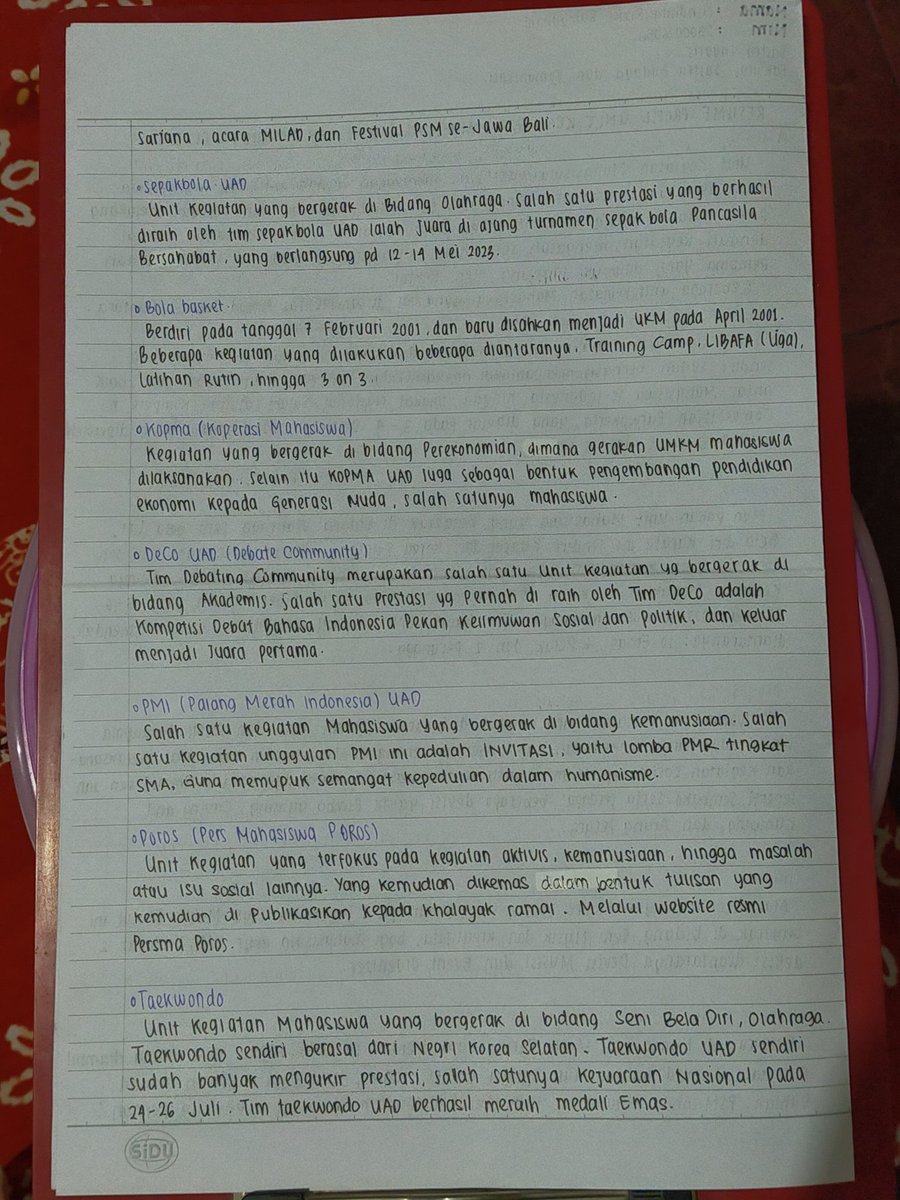 Nama :
Nim :
Sarjana, acara MILAD, dan Festival PSM se-Jawa Bali.
Sepakbola UAD
Unit Kegiatan yang bergerak di Bidang Olahraga. Salah satu prestasi yang berhasil
diraih oleh tim sepakbola UAD ialah Juara di ajang turnamen sepak bola Pancasila
Bersahabat, yang berlangsung pd 12-14 Mei 2023.
Bola basket.
Berdiri pada tanggal 7 Februari 2001, dan baru disahkan menjadi UKM pada April 2001.
Beberapa kegiatan yang dilakukan beberapa diantaranya, Training Camp, LIBAFA (Liga),
Latihan Rutin, hingga 3 on 3.
Kopma (Koperasi Mahasiswa)
Kegiatan yang bergerak di bidang Perekonomian, dimana gerakan UMKM mahasiswa
dilaksanakan. Selain itu KOPMA UAD Juga sebagai bentuk pengembangan pendidikan
ekonomi kepada Generasi Muda, salah satunya mahasiswa.
DeCo UAD (Debate Community)
Tim Debating Community merupakan salah satu Unit Kegiatan yg bergerak di
bidang Akademis. Salah satu Prestasi yg Pernah di raih oleh Tim DeCo adalah
Kompetisi Debat Bahasa Indonesia Pekan Keilmuwan Sosial dan Politik, dan keluar
menjadi Juara pertama.
PMI (Palang Merah Indonesia) UAD
Salah satu kegiatan Mahasiswa yang bergerak di bidang kemanusiaan. Salah
satu kegiatan unggulan PMI ini adalah INVITASI, yaitu lomba PMR tingkat
SMA, Guna memupuk semangat kepedulian dalam humanisme.
Poros (Pers Mahasiswa POROS)
Unit Kegiatan yang terfokus pada kegiatan aktivis, kemanusiaan, hingga masalah
atau Isu sosial lainnya. Yang kemudian dikemas dalam bentuk tulisan yang
kemudian di Publikasikan kepada khalayak ramai. Melalui website resmi
Persma Poros.
Taekwondo
Unit Kegiatan Mahasiswa yang bergerak di bidang Seni Bela Diri, Olahraga.
Taekwondo sendiri berasal dari Negri Korea Selatan. Taekwondo UAD sendiri
sudah banyak mengukir prestasi, salah satunya Kejuaraan Nasional pada
24-26 Juli. Tim taekwondo UAD berhasil meraih medali Emas.
SiDU